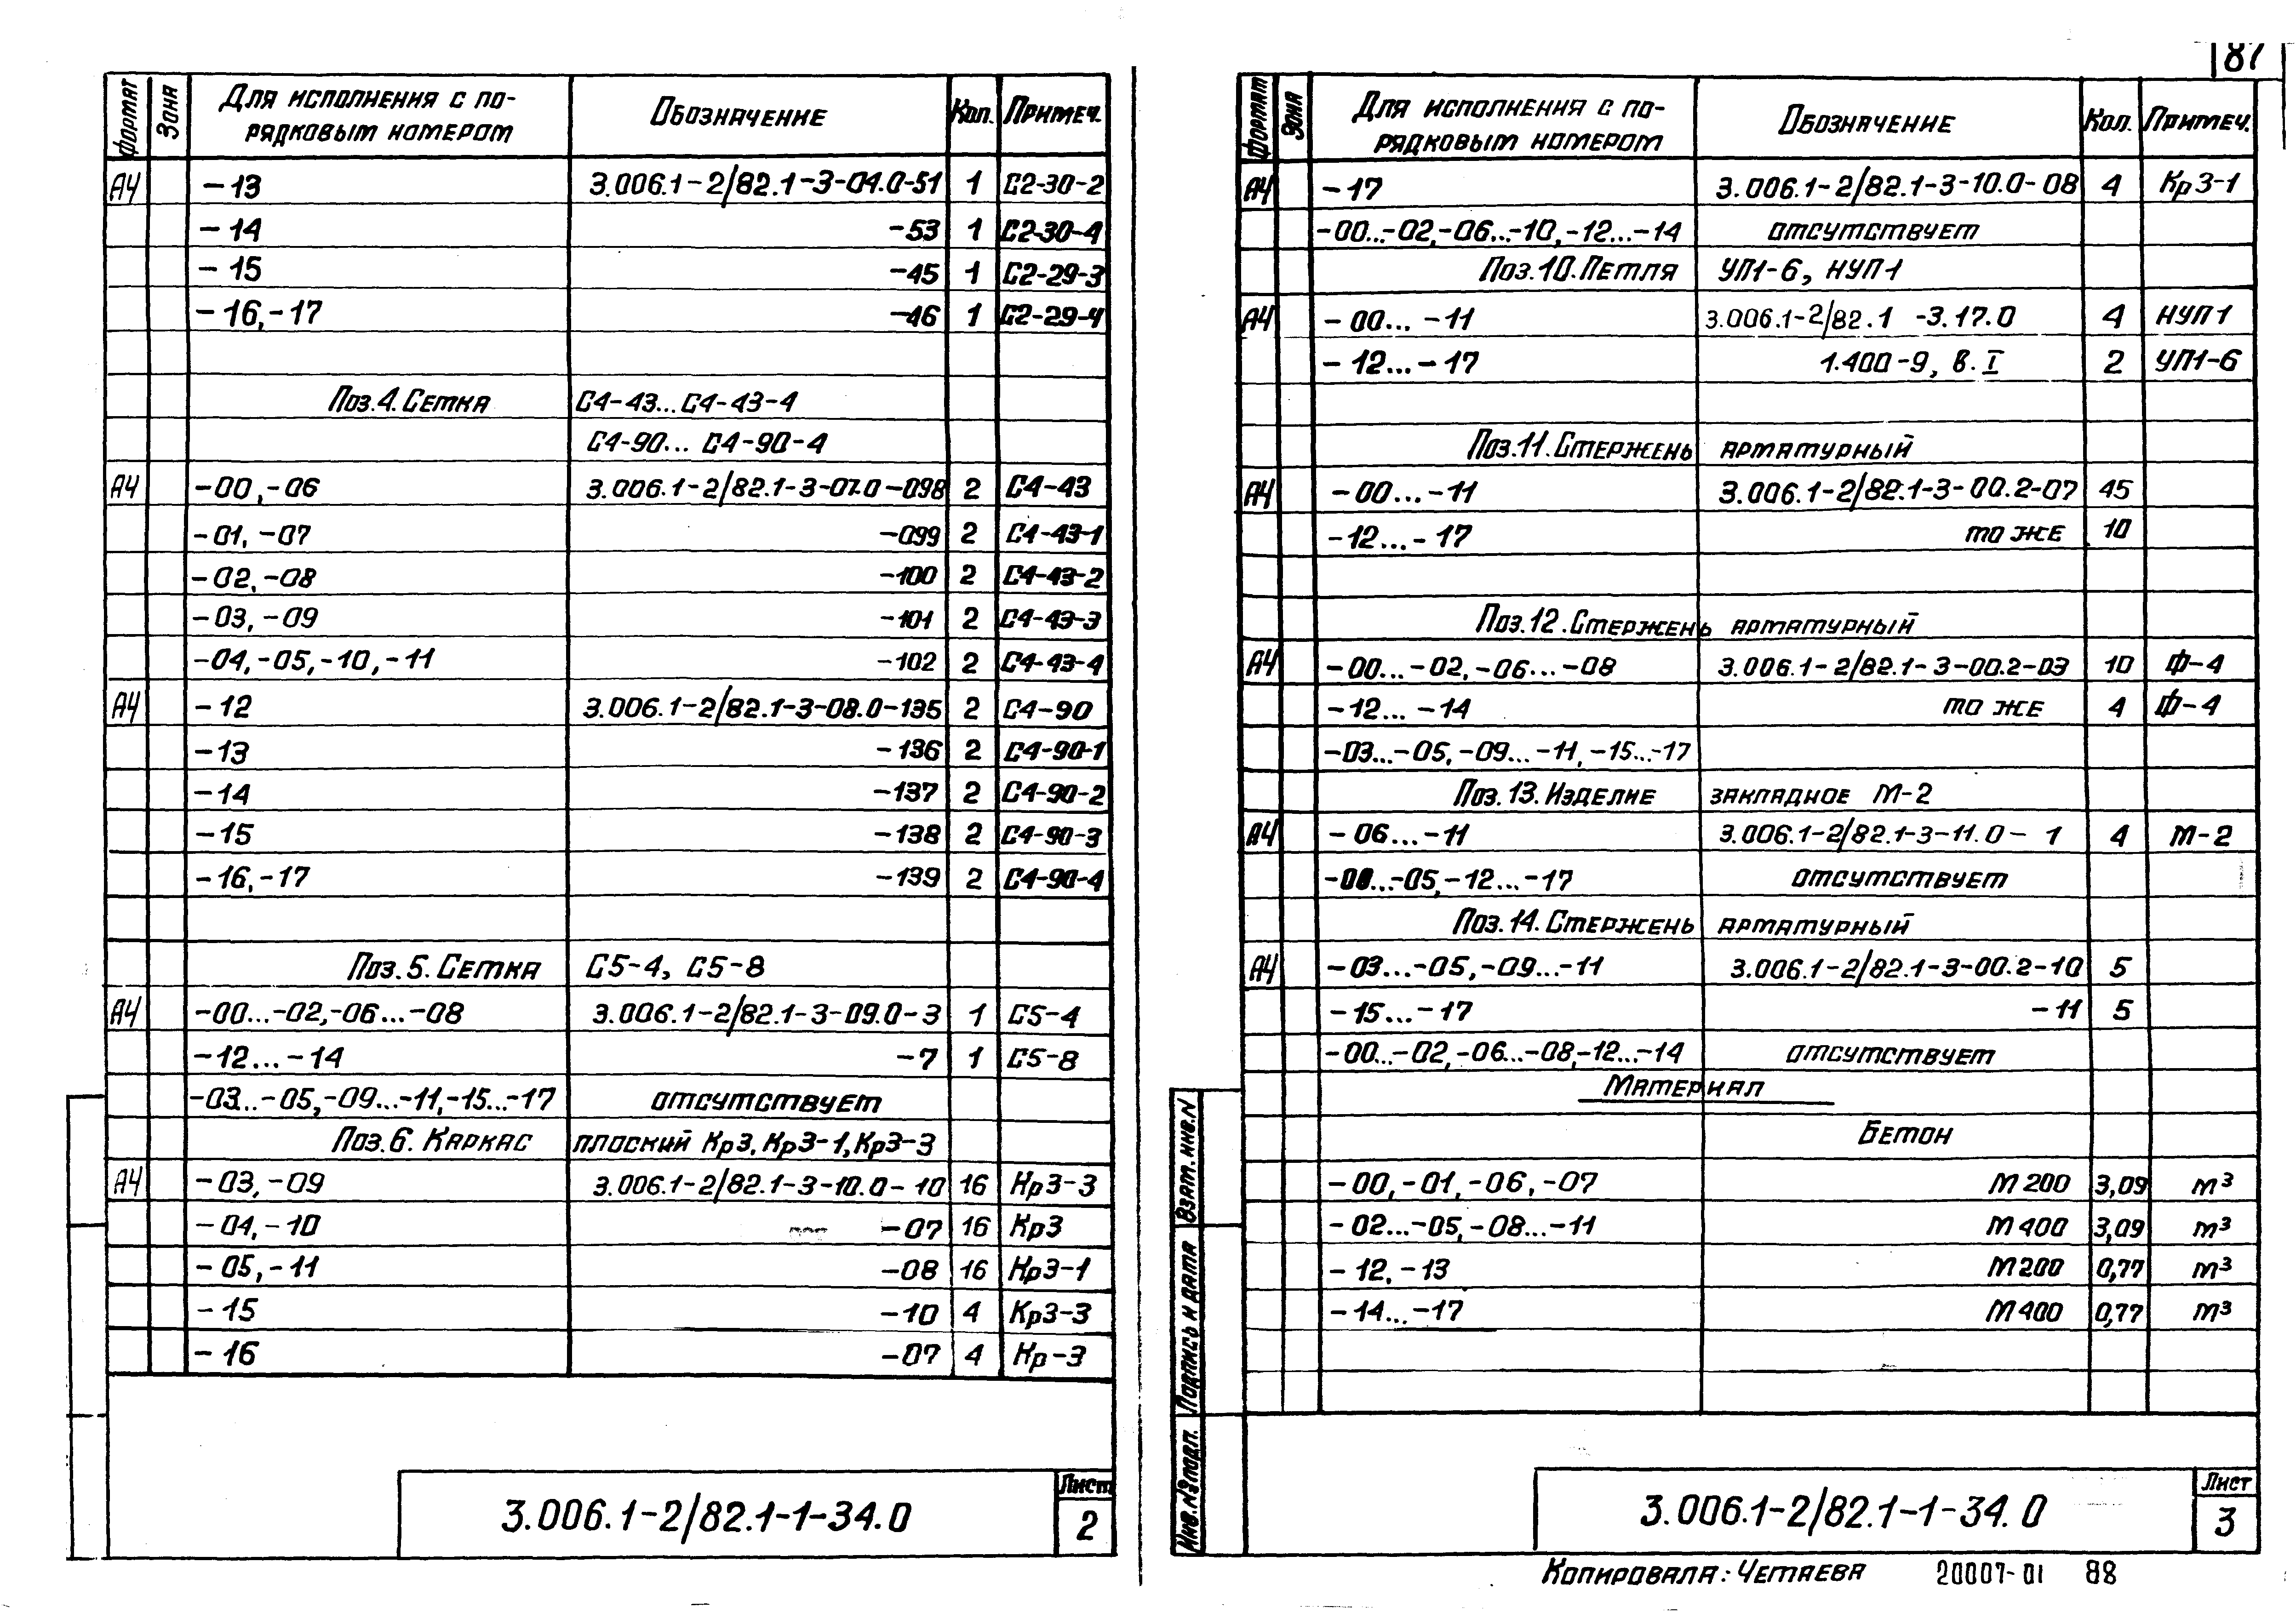 87
Формат Зона Для исполнения с по-рядковым номером Обозначение Кол. Примеч.
А4 -13 3.006.1-2/82.1-3-04.0-51 1 С2-30-2
-14 -53 1 С2-30-4
-15 -45 1 С2-29-3
-16,-17 -46 1 С2-29-4
Поз.4.Сетка С4-43...С4-43-4
С4-90... С4-90-4
А4 -00,-06 3.006.1-2/82.1-3-07.0-098 2 С4-43
-01,-07 -099 2 С4-43-1
-02,-08 -100 2 С4-43-2
-03,-09 -101 2 С4-43-3
-04,-05,-10,-11 -102 2 С4-43-4
А4 -12 3.006.1-2/82.1-3-08.0-135 2 С4-90
-13 -136 2 С4-90-1
-14 -137 2 С4-90-2
-15 -138 2 С4-90-3
-16,-17 -139 2 С4-90-4
Поз.5.Сетка С5-4, С5-8
А4 -00...-02,-06...-08 3.006.1-2/82.1-3-09.0-3 1 С5-4
-12...-14 -7 1 С5-8
-03...-05,-09...-11,-15...-17 отсутствует
Поз.6. Каркас плоский Кр3, Кр3-1, Кр3-3
А4 -03,-09 3.006.1-2/82.1-3-10.0-10 16 Кр3-3
-04,-10 -07 16 Кр3
-05,-11 -08 16 Кр3-1
-15 -10 4 Кр3-3
-16 -07 4 Кр-3
3.006.1-2/82.1-1-34.0
Лист
2
Формат Зона Для исполнения с по-рядковым номером Обозначение Кол. Примеч.
А4 -17 3.006.1-2/82.1-3-10.0-08 4 Кр3-1
-00...-02,-06...-10,-12...-14 отсутствует
Поз.10.Петля УП1-6, НУП1
А4 -00...-11 3.006.1-2/82.1 -3.17.0 4 НУП1
-12...-17 1.400-9, в.I 2 УП1-6
Поз.11.Стержень арматурный
А4 -00...-11 3.006.1-2/82.1-3-00.2-07 45
-12...-17 то же 10
Поз.12.Стержень арматурный
А4 -00...-02,-06...-08 3.006.1-2/82.1-3-00.2-03 10 Ф-4
-12...-14 то же 4 Ф-4
-03...-05,-09...-11,-15...-17
Поз.13.Изделие закладное М-2
А4 -06...-11 3.006.1-2/82.1-3-11.0- 1 4 М-2
-00...-05,-12...-17 отсутствует
Поз.14.Стержень арматурный
А4 -03...-05,-09...-11 3.006.1-2/82.1-3-00.2-10 5
-15...-17 -11 5
-00...-02,-06...-08,-12...-14 отсутствует
Материал
Бетон
-00,-01,-06,-07 М200 3,09 м³
-02...-05,-08...-11 М400 3,09 м³
-12,-13 М200 0,77 м³
-14...-17 М400 0,77 м³
Взам.инв.N
Подпись и дата
Инв.N подл.
3.006.1-2/82.1-1-34.0
Лист
3
Копировала: Четаева 20007-01 88